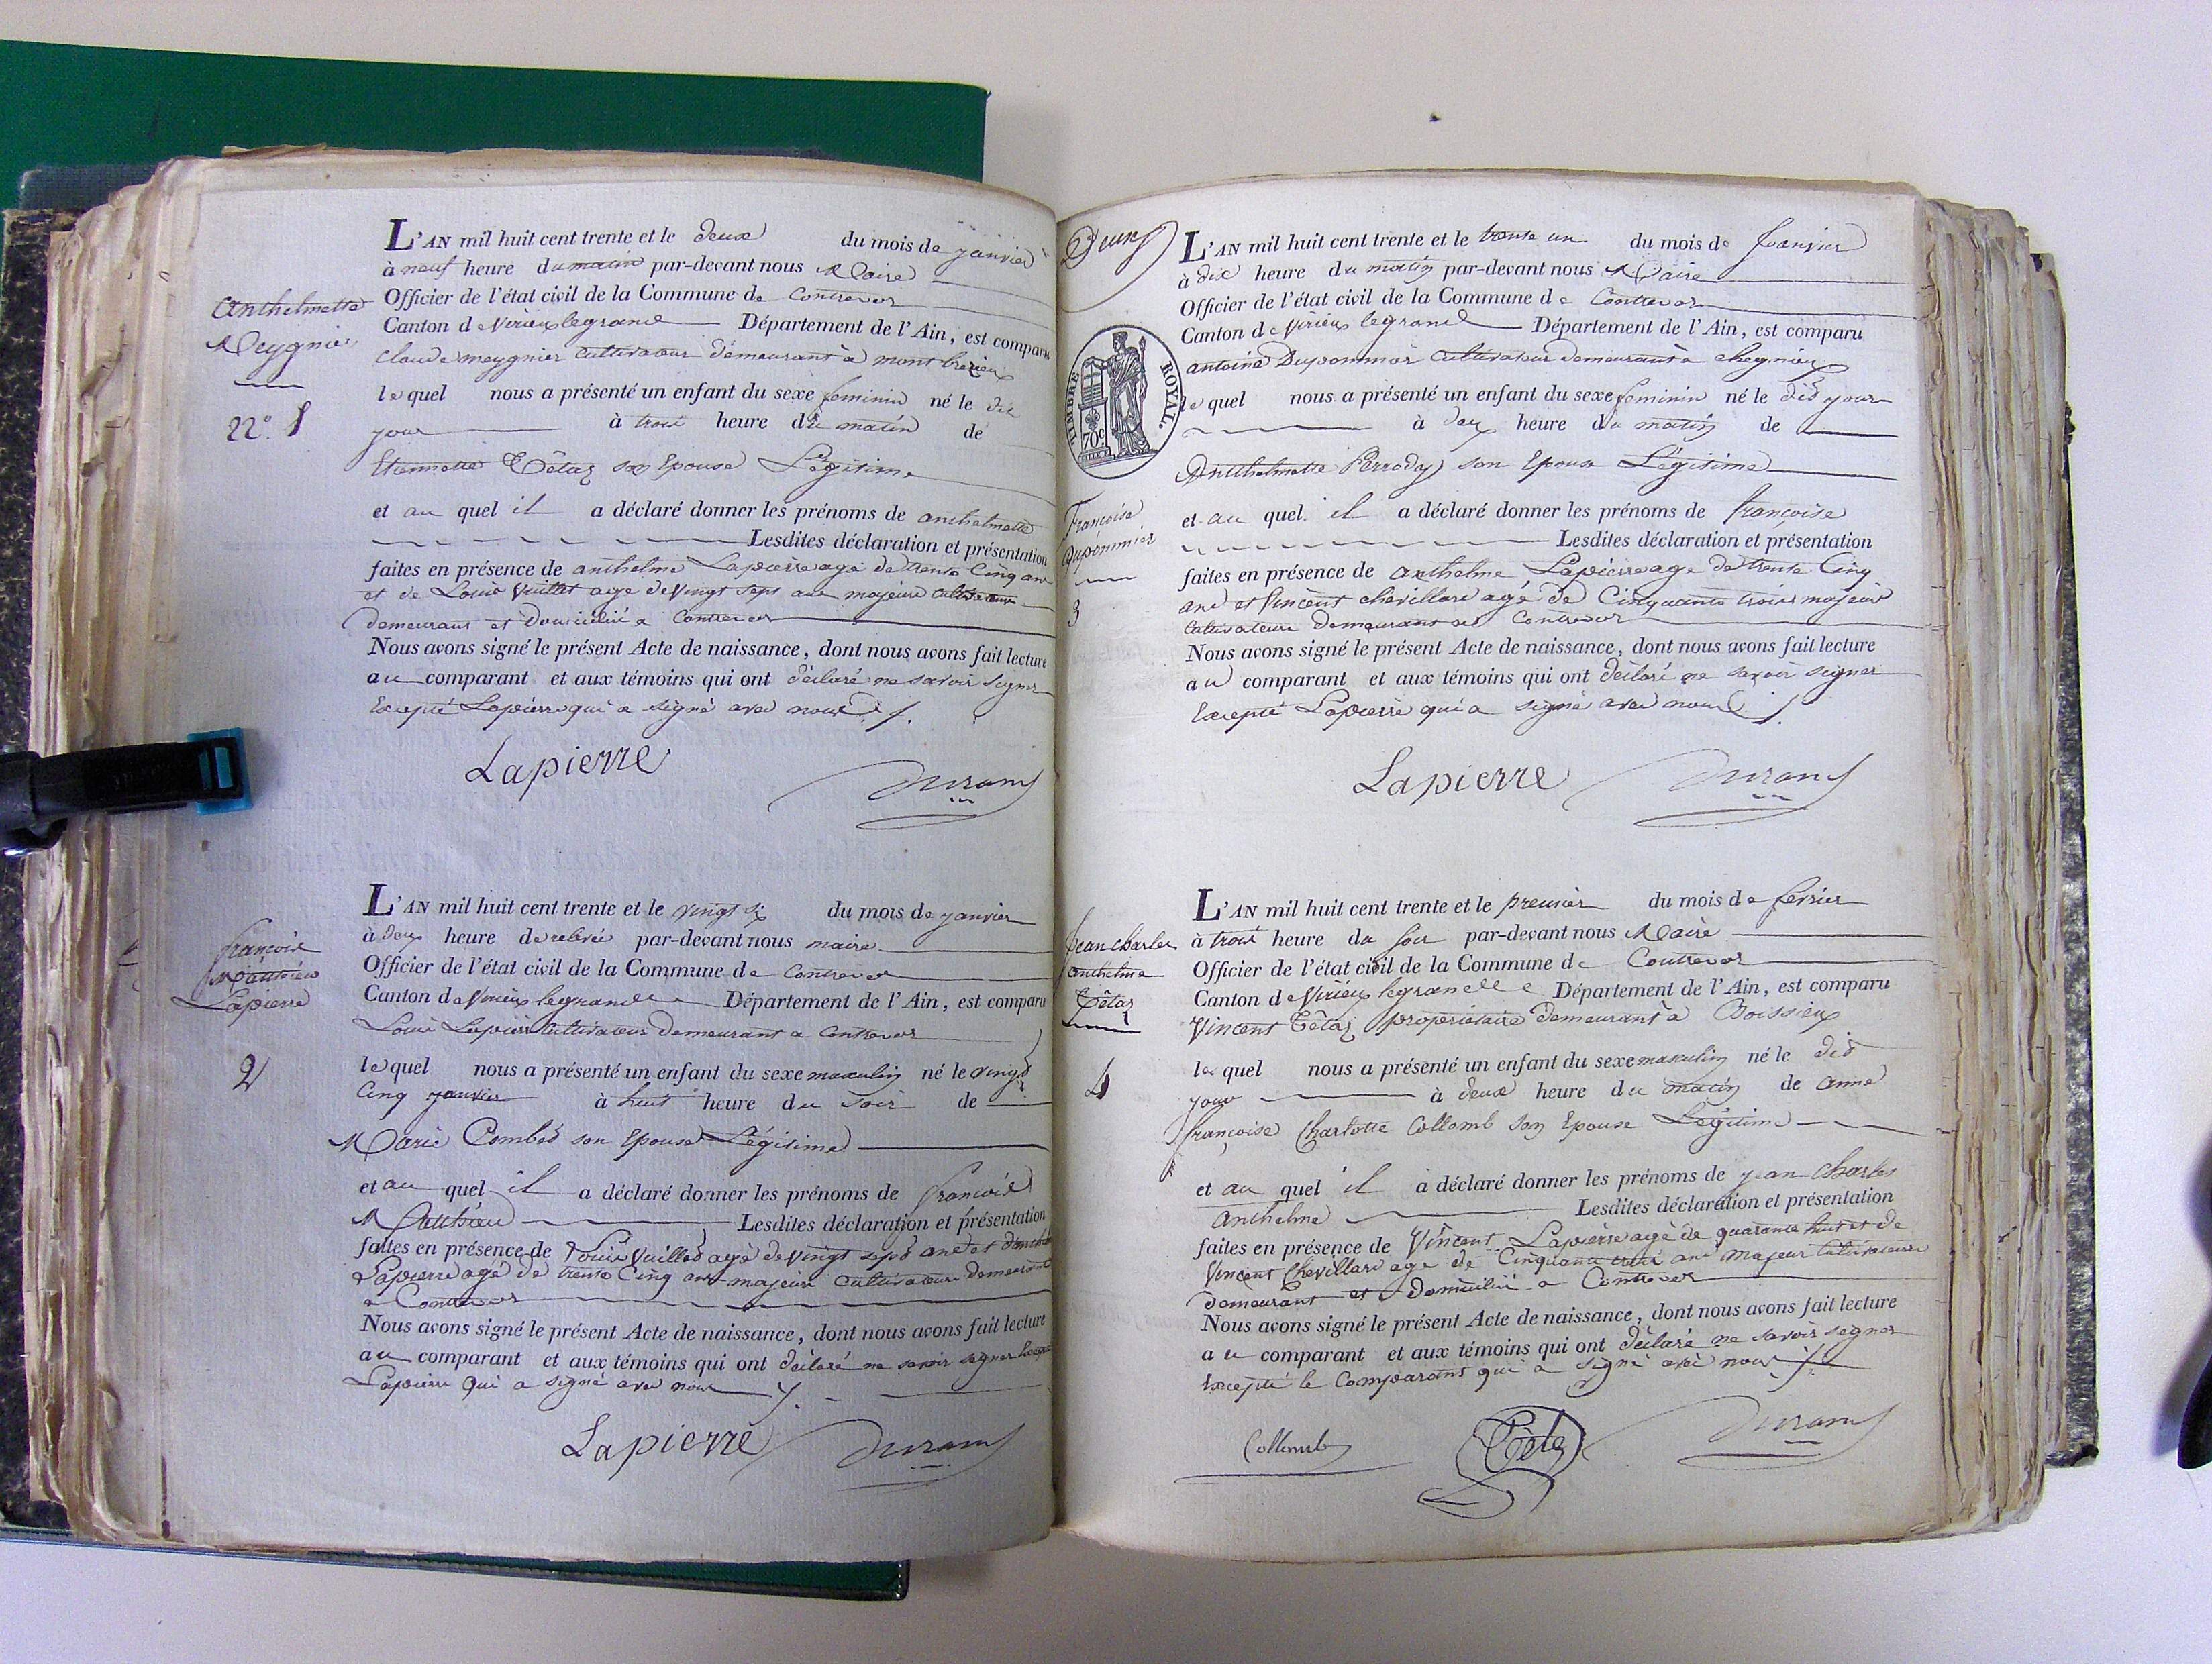 Anthelmette
Meygnier
N°. 1
L'AN mil huit cent trente et le deux du mois de janvier
à neuf heure du matin par-devant nous Maire
Officier de l'état civil de la Commune de Contrevoz
Canton de Virieux legrand Département de l'Ain, est comparu
Claude meygnier cultivateur demeurant à montbrezieux
le quel nous a présenté un enfant du sexe feminin né le dit
jour à trois heure du matin de
Etiennette Têtaz son Epouse Légitime
et au quel il a déclaré donner les prénoms de anthelmette
Lesdites déclaration et présentation
faites en présence de anthelme Lapierre agé de trente Cinq ans
et de Louis Vuillet age de Vingt sept ans majeurs cultivateurs
demeurant et Domicilié a Contrevoz
Nous avons signé le présent Acte de naissance, dont nous avons fait lecture
au comparant et aux témoins qui ont déclaré ne savoir signer
Excepté Lapierre qui a signé avec nous
Lapierre Durand
françois
Mathieu
Lapierre
2
L'AN mil huit cent trente et le vingt six du mois de janvier
à deux heure de relevée par-devant nous maire
Officier de l'état civil de la Commune de Contrevoz
Canton de Virieux legrand Département de l'Ain, est comparu
Louis Lapierre Cultivateur Demeurant a Contrevoz
le quel nous a présenté un enfant du sexe masculin né le vingt
Cinq janvier à huit heure du soir de
Marie Combet son Epouse Légitime
et au quel il a déclaré donner les prénoms de françois
Matthieu Lesdites déclaration et présentation
faites en présence de Louis Vuillet agé de Vingt sept ans et
Lapierre agé de trente Cinq ans majeurs cultivateurs demeurant
a Contrevoz
Nous avons signé le présent Acte de naissance, dont nous avons fait lecture
au comparant et aux témoins qui ont déclaré ne savoir signer Excepté
Lapierre qui a signé avec nous
Lapierre Durand
Deux
TIMBRE ROYAL.
70c
Françoise
Duponnier
3
L'AN mil huit cent trente et le trente un du mois de Janvier
à dix heure du matin par-devant nous Maire
Officier de l'état civil de la Commune de Contrevoz
Canton de Virieux legrand Département de l'Ain, est comparu
antoine Duponnier Cultivateur demeurant à Chegnieu
le quel nous a présenté un enfant du sexe feminin né le dit jour
à deux heure du matin de
Anthelmette Perrody son Epouse Légitime
et au quel il a déclaré donner les prénoms de françoise
Lesdites déclaration et présentation
faites en présence de anthelme Lapierre age de trente Cinq
ans et Vincent chevillard agé de Cinquante trois majeurs
Cultivateurs Demeurant a Contrevoz
Nous avons signé le présent Acte de naissance, dont nous avons fait lecture
au comparant et aux témoins qui ont déclaré ne savoir signer
Excepté Lapierre qui a signé avec nous
Lapierre Durand
Jean charles
anthelme
Têtaz
4
L'AN mil huit cent trente et le premier du mois de fevrier
à trois heure du soir par-devant nous Maire
Officier de l'état civil de la Commune de Contrevoz
Canton de Virieux legrand Département de l'Ain, est comparu
Vincent Têtaz propriétaire demeurant à Boissieux
le quel nous a présenté un enfant du sexe masculin né le dit
jour à deux heure du matin de anne
françoise Charlotte Collomb son Epouse Légitime
et au quel il a déclaré donner les prénoms de jean Charles
Anthelme Lesdites déclaration et présentation
faites en présence de Vincent Lapierre agé de quarante huit et de
Vincent Chevillard age de Cinquante trois ans majeur Cultivateurs
demeurant et Domicilié a Contrevoz
Nous avons signé le présent Acte de naissance, dont nous avons fait lecture
au comparant et aux témoins qui ont déclaré ne savoir signer
Excepté le Comparant qui a signé avec nous
Collomb Têtaz Durand